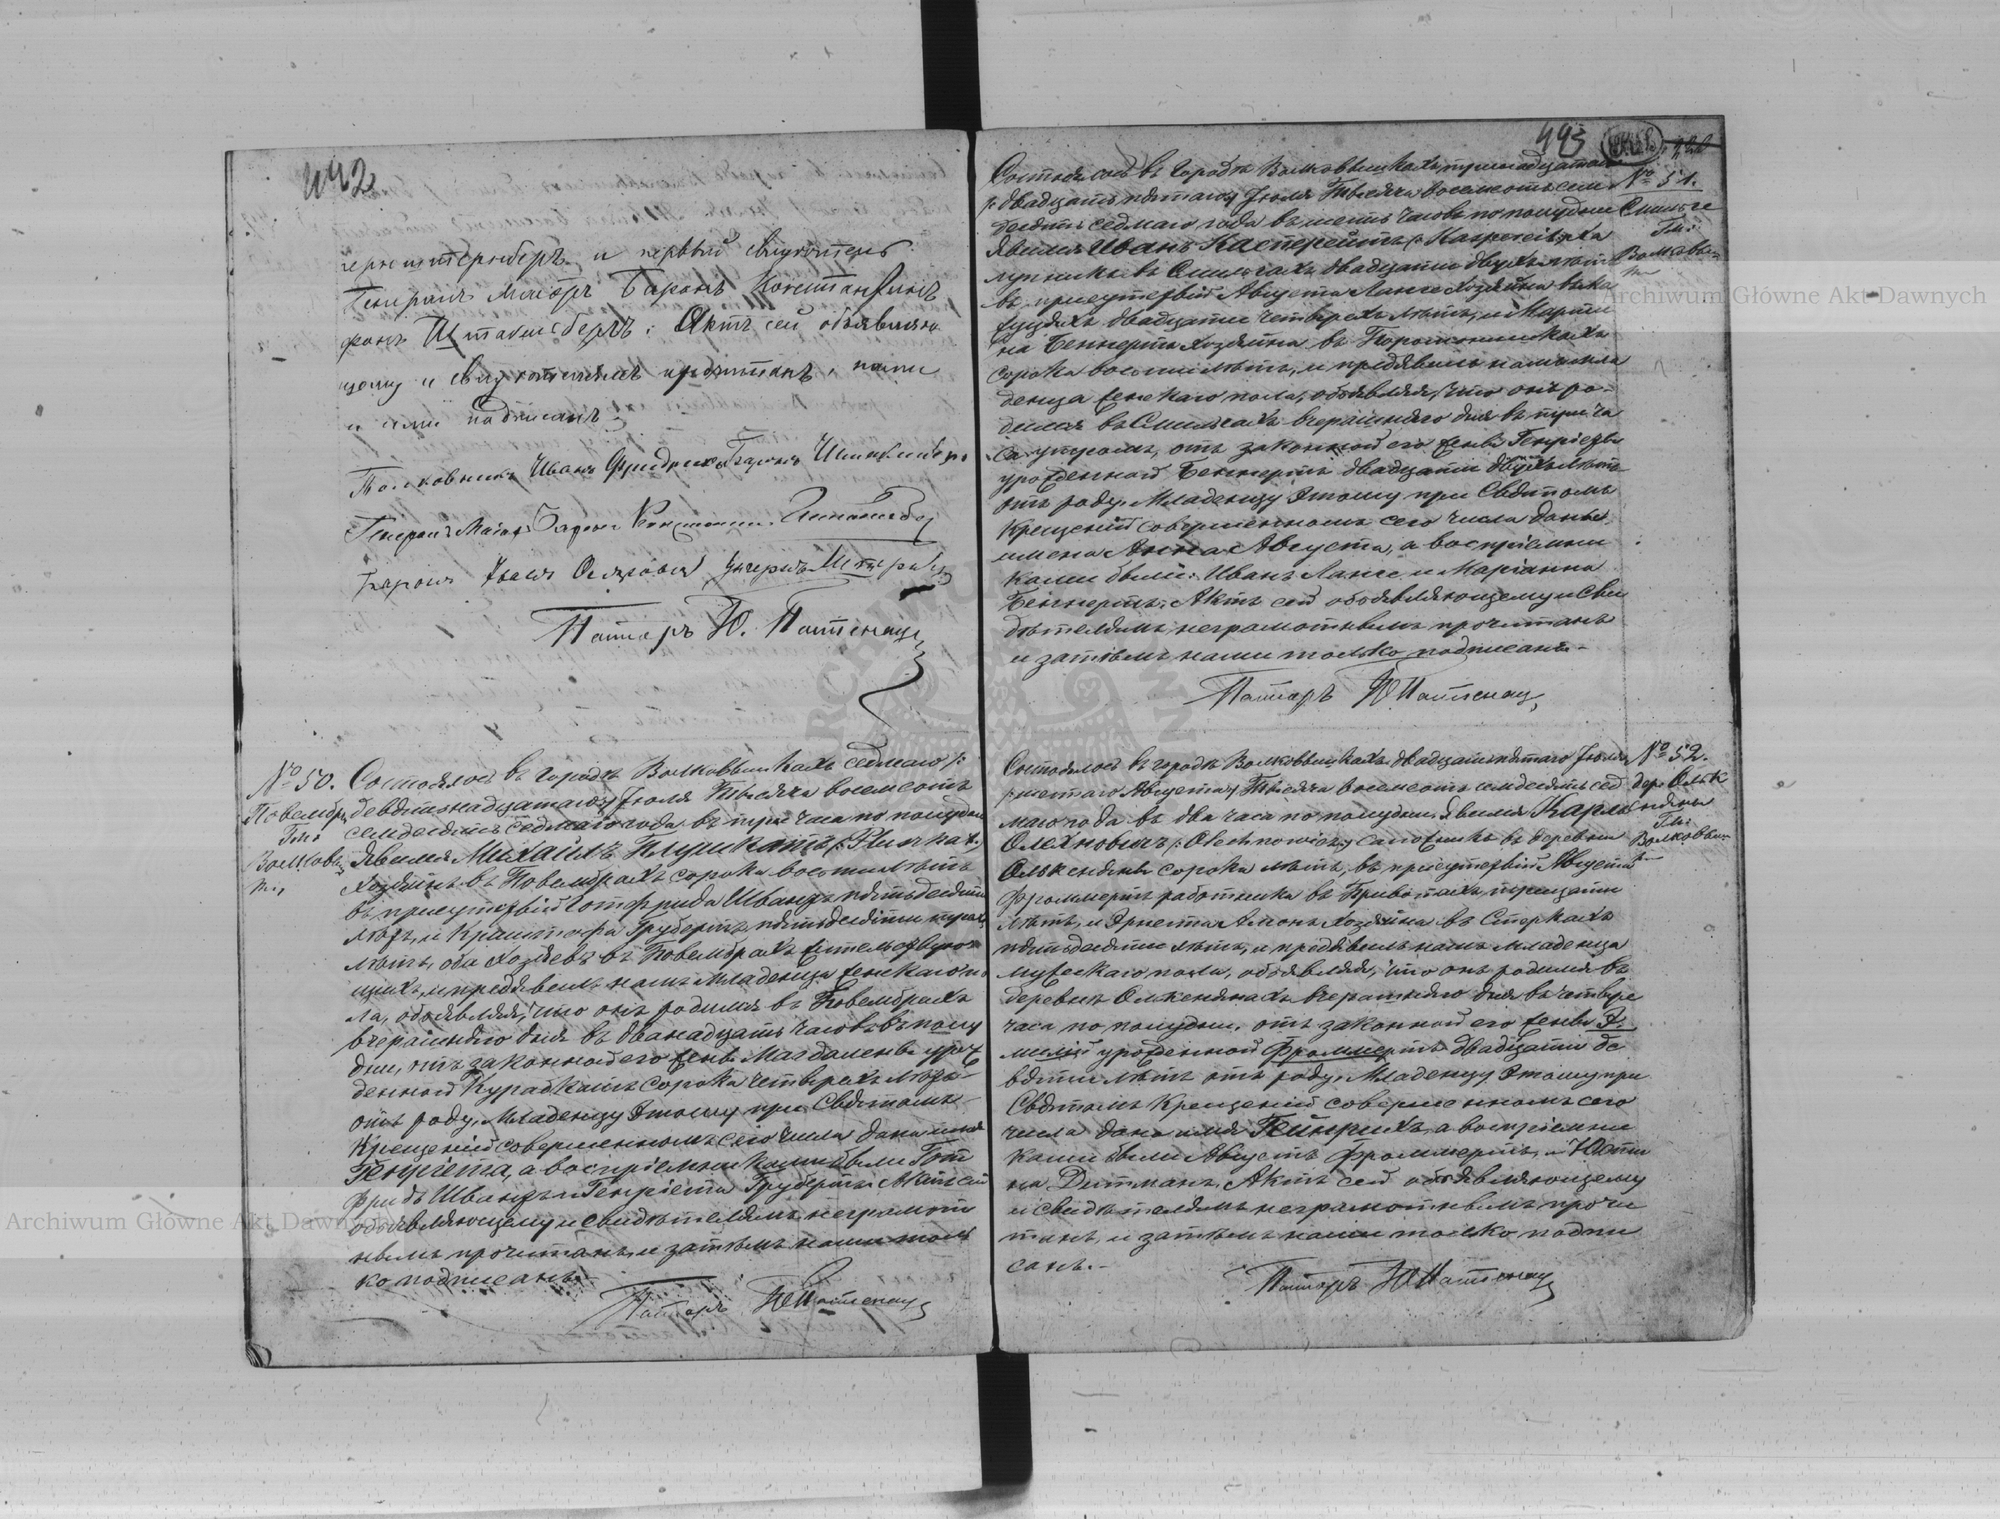 442
и первый свидѣтель
Генералъ Маіоръ Баронъ Константинъ
фонъ Штакельбергъ: Актъ сей объявляю
щему и свидѣтелямъ прочитанъ, нами
и ими подписанъ:
Полковникъ Иванъ Фридрихъ Баронъ
Генералъ Маіоръ Баронъ
Баронъ
Пасторъ Ю.
№ 50.
Повембры
Гм:
Волков
Состоялось въ городѣ Волковышкахъ седмаго /:
девятнадцатаго:/ Іюля Тысяча восемсотъ
семдесятъ седмаго года въ три часа по полудни
Явился Михаилъ Плушкатъ /: Pluszkat:/
Хозяинъ въ Повембрахъ сорока восьми лѣтъ
въ присутствіи Готфрида Шванцъ пятьдесяти
лѣтъ, и Криштофа Грубертъ, пятидесяти трехъ
лѣтъ, оба Хозяевъ въ Повембрахъ жительствую
щихъ, и предъявилъ намъ Младенца женскаго по
ла, объявляя, что онъ родился въ Повембрахъ
вчерашняго дня въ двѣнадцать часовъ въ полу
дни, отъ законной его жены Магдалены урож
денной Курадкатъ сорока четырехъ лѣтъ
отъ роду, Младенцу Этому при Святомъ
Крещеніи совершенномъ сего числа дано имя
Генріета, а воспріемниками были Гот
фридъ Шванцъ и Генріета Грубертъ. Актъ сей
объявляющему и свидѣтелямъ неграмот
нымъ прочитанъ и затѣмъ нами толь
ко подписанъ.
Пасторъ Ю
443
№ 51.
Смильге
Гм:
Состоялось въ городѣ Волковышкахъ, тринадцатаго
/: двадцать пятаго:/ Іюля Тысяча восемсотъ семь
десятъ седмаго года въ шесть часовъ по полудни
Явился Иванъ Касперейтъ /: Kaspereit:/ Ха
лупникъ въ Смильгахъ двадцати двухъ лѣтъ
въ присутствіи Августа Ланге Хозяина
двадцати четырехъ лѣтъ, и Марти
на Беннертъ Хозяина въ
сорока восьми лѣтъ, и предъявилъ намъ мла
денца женскаго пола, объявляя, что онъ ро-
дился въ Смильгахъ вчерашняго дня въ три ча
са утромъ, отъ законной его жены Генріеты
урожденной Беннертъ двадцати двухъ лѣтъ
отъ роду, Младенцу Этому при Святомъ
Крещеніи совершенномъ сего числа даны
имена Анна Августа, а воспріемни
ками были: Иванъ Ланге и Маріанна
Беннертъ. Актъ сей объявляющему и сви
дѣтелямъ неграмотнымъ прочитанъ
и затѣмъ нами только подписанъ.-
Пасторъ Ю
№ 52.
дер: Ольк
Гм:
Волковы
Состоялось въ городѣ Волковышкахъ двадцать пятаго Іюля
/: шестаго Августа:/ Тысяча восемсотъ семдесятъ сед
маго года въ два часа по полудни. Явился Карлъ
Олехновичъ /: Olechnowicz:/ сапожникъ въ деревни
сорока лѣтъ, въ присутствіи Августа
Фроммертъ работника въ тридцати
лѣтъ, и Эрнеста Амонъ Хозяина въ Стеркахъ
пятьдесяти лѣтъ, и предъявилъ намъ Младенца
мужескаго пола, объявляя, что онъ родился въ
деревнѣ вчерашняго дня въ четыре
часа по полудни, отъ законной его жены Э
миліи урожденной Фроммертъ двадцати де
вяти лѣтъ отъ роду, Младенцу Этому при
Святомъ Крещеніи совершенномъ сего
числа дано имя Гейнрихъ, а воспріемни
ками были Августъ Фроммертъ, и Юсти
на Дитманъ, Актъ сей объявляющему
и свидѣтелямъ неграмотнымъ прочи
танъ, и затѣмъ нами только подпи
санъ.-
Пасторъ Ю
Archiwum Główne Akt Dawnych
Archiwum Główne Akt Dawnych